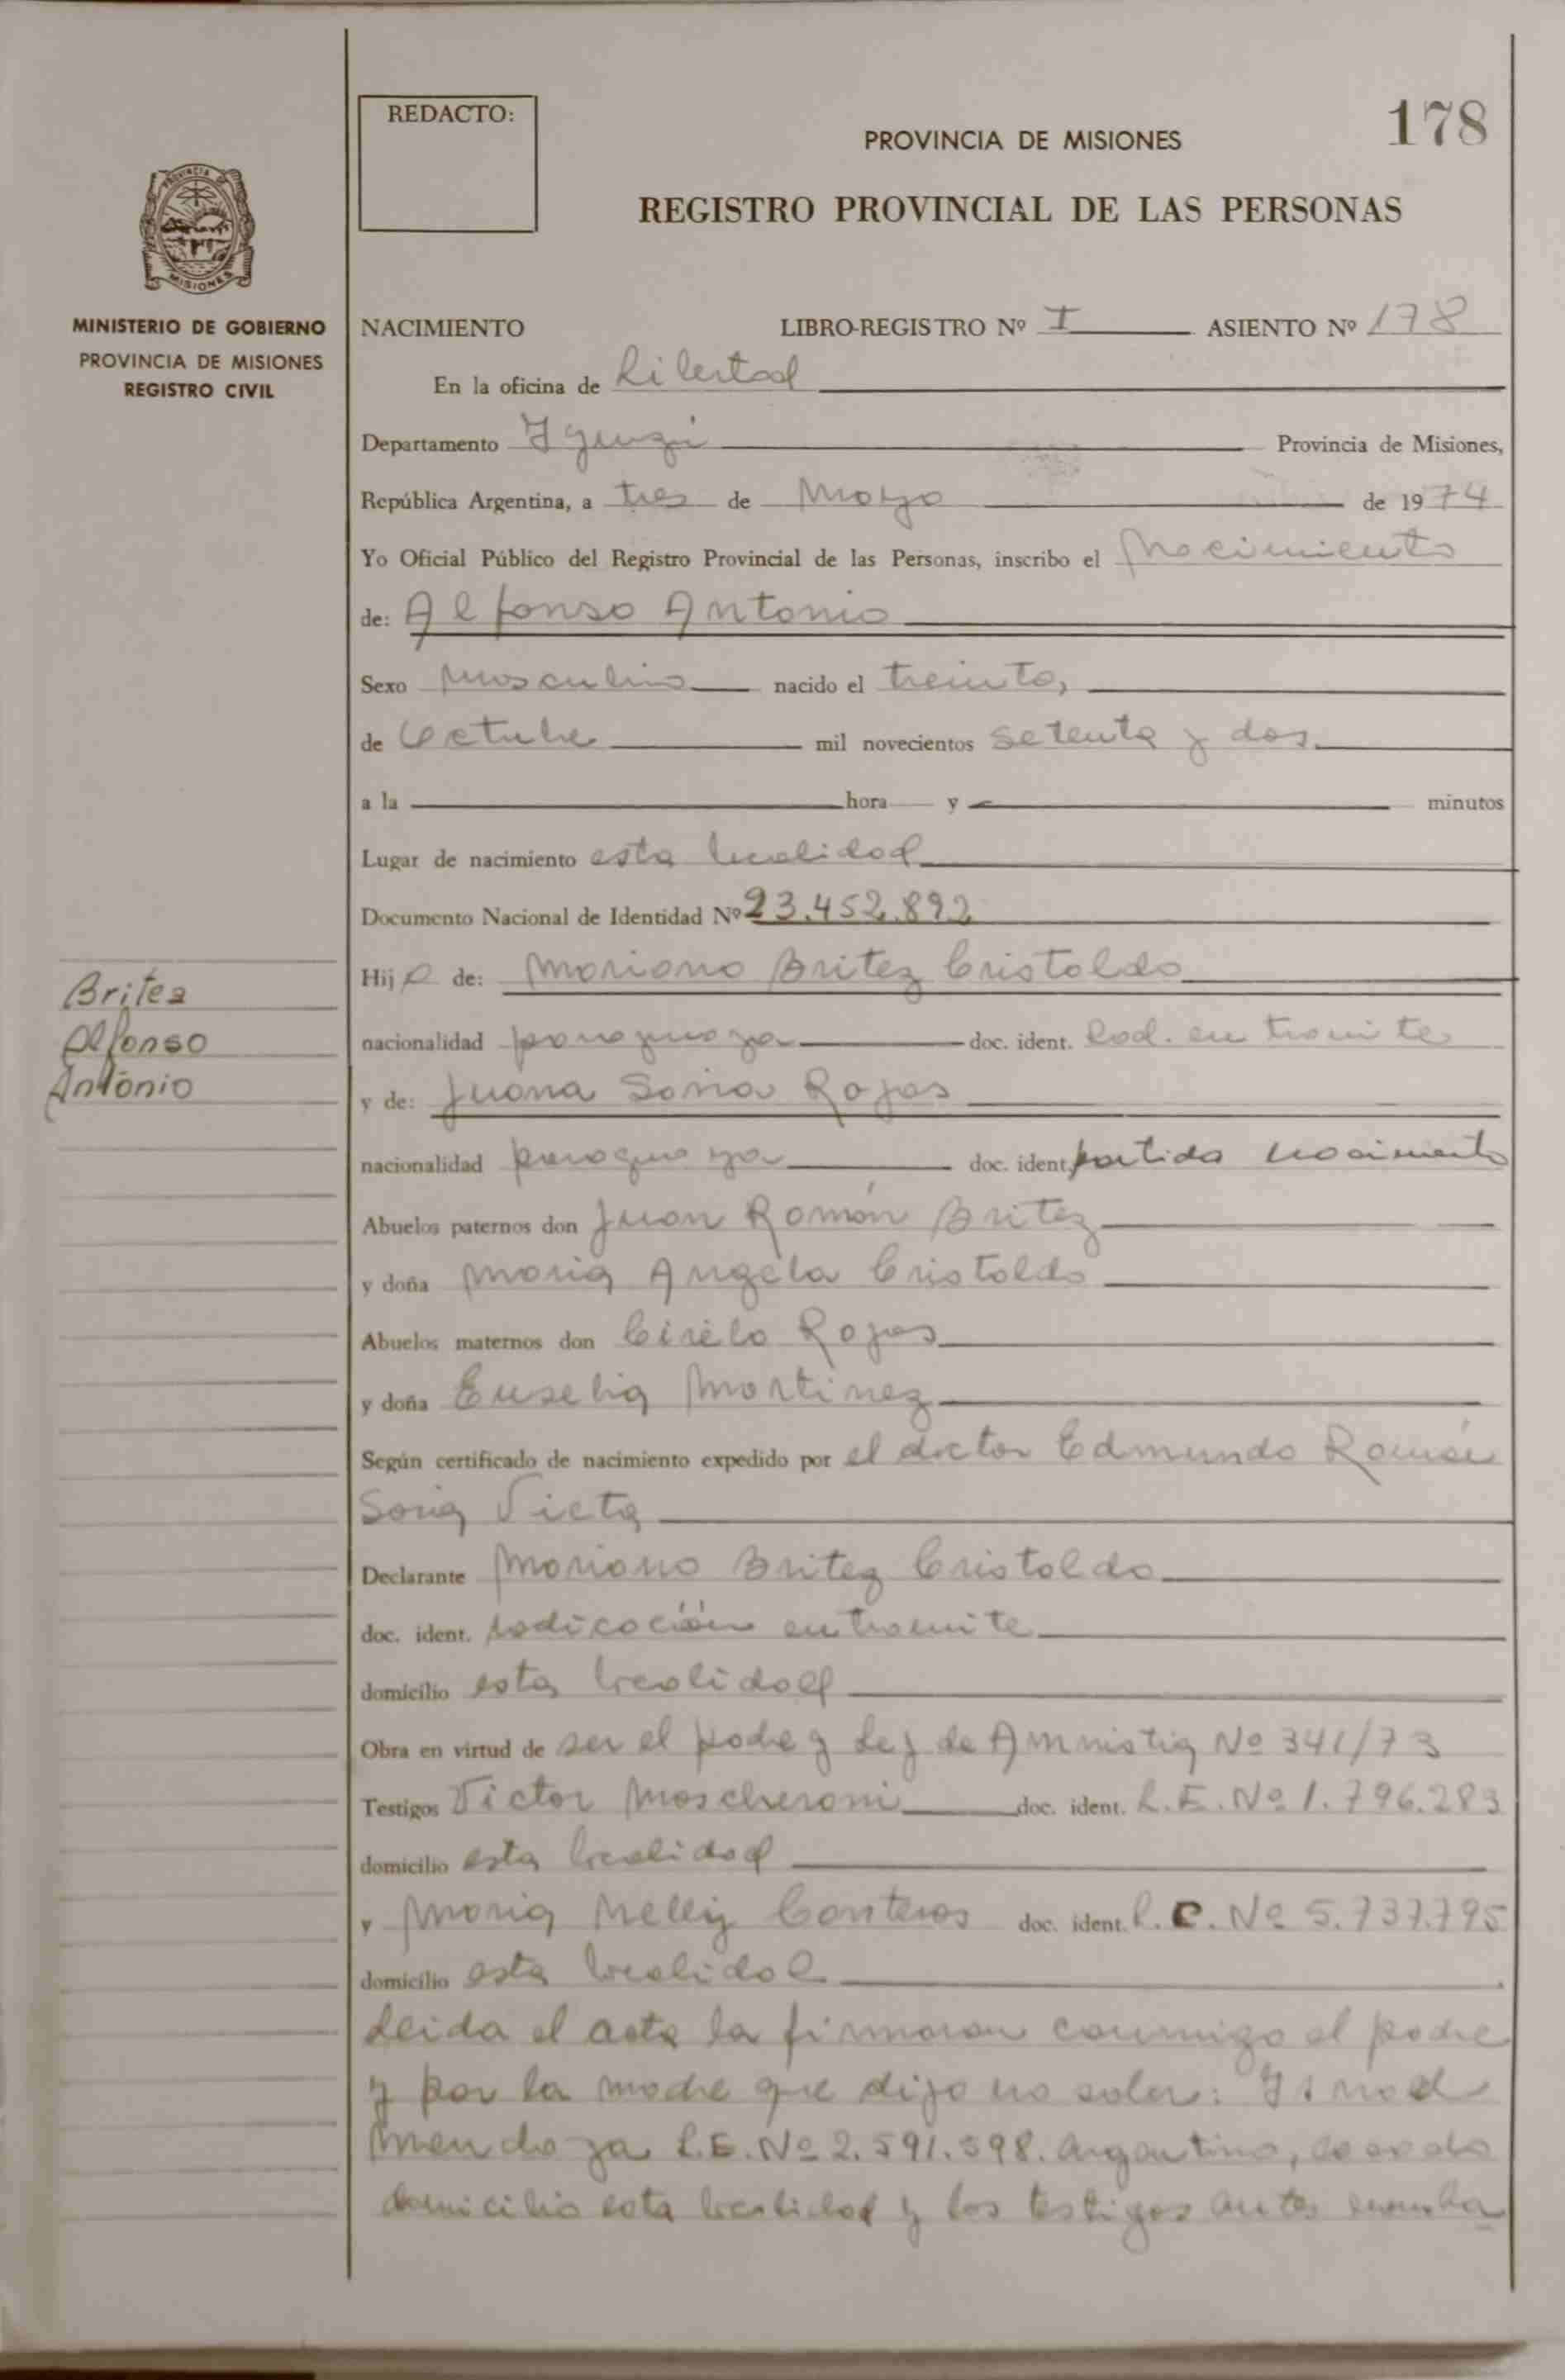 REDACTO:
178
PROVINCIA DE MISIONES
REGISTRO PROVINCIAL DE LAS PERSONAS
PROVINCIA DE
MISIONES
MINISTERIO DE GOBIERNO
PROVINCIA DE MISIONES
REGISTRO CIVIL
NACIMIENTO LIBRO-REGISTRO Nº I ASIENTO Nº 178
En la oficina de Libertad
Departamento Iguazú Provincia de Misiones,
República Argentina, a tres de Marzo de 1974
Yo Oficial Público del Registro Provincial de las Personas, inscribo el Nacimiento
de: Alfonso Antonio
Sexo Masculino nacido el treinta,
de Octubre mil novecientos setenta y dos
a la hora y minutos
Lugar de nacimiento esta localidad
Documento Nacional de Identidad Nº 23.452.892
Hijo de: Mariano Britez Cristaldo
nacionalidad paraguaya doc. ident. Rad. en tramite
Britez
Alfonso
Antonio
y de: Juana Rojas
nacionalidad paraguaya doc. ident. partida nacimiento
Abuelos paternos don Juan Román Britez
y doña Maria Angela Cristaldo
Abuelos maternos don Cirilo Rojas
y doña Eusebia Martinez
Según certificado de nacimiento expedido por el doctor Edmundo Ramón
Soria Vieta
Declarante Mariano Britez Cristaldo
doc. ident. radicación en tramite
domicilio esta localidad
Obra en virtud de ser el padre y Ley de Amnistia Nº 341/73
Testigos Victor Moscheroni doc. ident. L.E. Nº 1.796.283
domicilio esta localidad
y Maria Nelly doc. ident. L.C. Nº 5.737.795
domicilio esta localidad
Leida el acta la firmaron conmigo el padre
y por la madre que dijo no saber:
Mendoza L.E. Nº 2.591.598. argentino, casado
domicilio esta localidad y los testigos antes